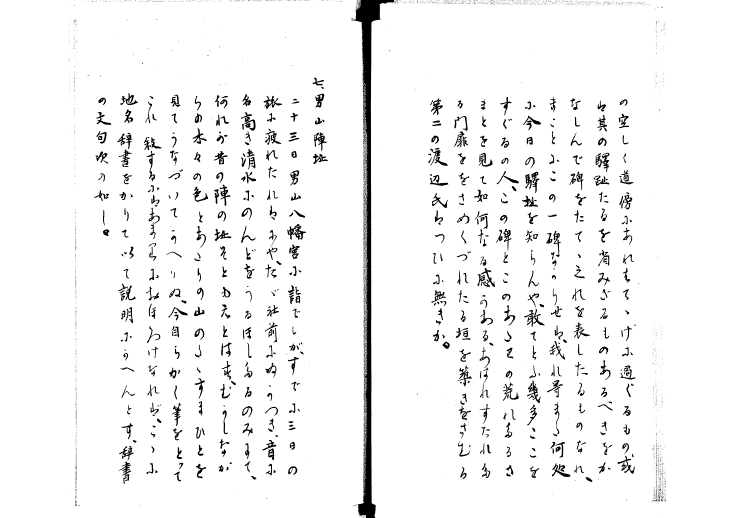 の空しく道傍にあれすてゝげに過ぐるもの或
は其の驛趾たるを省みざるものあるべきをか
なしんで碑をたてゝ之れを表したるものなれ、
まことにこの一碑なかりせば、我れ等また何処
に今日の驛址を知らんや、敢てとふ幾多ここを
すぐるの人、この碑とこのあたりの荒れたるさ
まとを見て如何なる感かある、あはれすたれた
る門扉ををさめくづれたる垣を築きをさむる
第二の渡辺氏はつひに無きか。
七、男山陣址
二十三日男山八幡宮に詣でしが、すでに三日の
旅に疲れたればにや、たゞ社前にぬかづき、音に
名高き清水にのんどをうるほしたるのみにて、
何れが昔の陣の址ぞともえとはず、むかしなが
らの木々の色とあたりの山のたゝずまひとを
見てうなづいてかへりぬ、今自らかく筆をとつて
これ叙するにはあまりにおほろげなれば、こゝに
地名辞書をかりて以て説明にかへんとす、辞書
の文句次の如し。